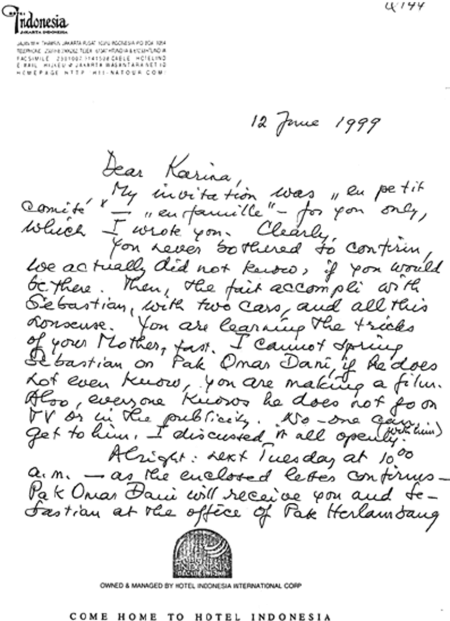 Q 144
Indonesia
JAKARTA INDONESIA
HOMEPAGE HTTP
12 June 1999
Dear Karina,
My invitation was „en petit
comité" — „en famille" – for you only,
which I wrote you. Clearly.
You never bothered to confirm,
we actually did not know, if you would
be there. Then, the fait accompli with
Sebastian, with two cars, and all this
nonsense. You are learning the tricks
of your Mother, fast. I cannot spring
Sebastian on Pak Omar Dani, if he does
not even know, you are making a film.
Also, everyone knows he does not go on
TV or in the publicity. No-one can
get to him. I discussed it all openly (with him).
Alright: next Tuesday at 10⁰⁰
a.m. — as the enclosed letter confirms –
Pak Omar Dani will receive you and Se-
bastian at the office of Pak Herlambang
OWNED & MANAGED BY HOTEL INDONESIA INTERNATIONAL CORP
COME HOME TO HOTEL INDONESIA